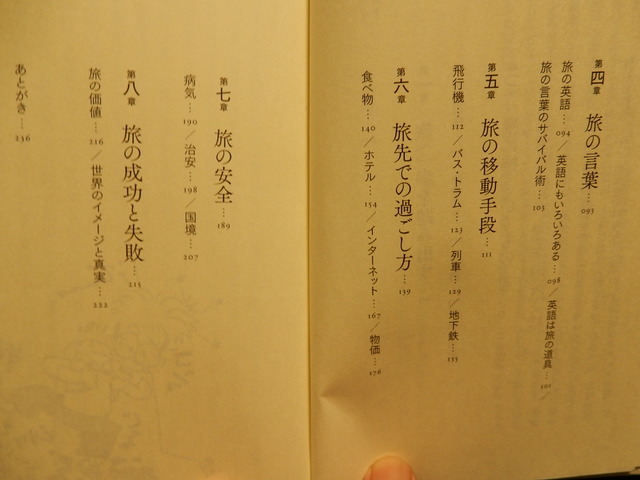 第四章 旅の言葉… 093
旅の英語… 094 ／英語にもいろいろある… 098 ／英語は旅の道具… 101 ／
旅の言葉のサバイバル術… 103
第五章 旅の移動手段… 111
飛行機… 112 ／バス・トラム… 123 ／列車… 129 ／地下鉄… 133
第六章 旅先での過ごし方… 139
食べ物… 140 ／ホテル… 154 ／インターネット… 167 ／物価… 176
第七章 旅の安全… 189
病気… 190 ／治安… 198 ／国境… 207
第八章 旅の成功と失敗… 215
旅の価値… 216 ／世界のイメージと真実… 222
あとがき… 236